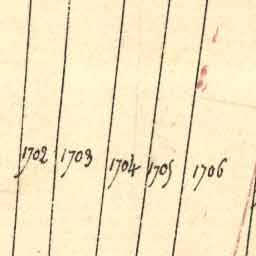 1702 1703 1704 1705 1706